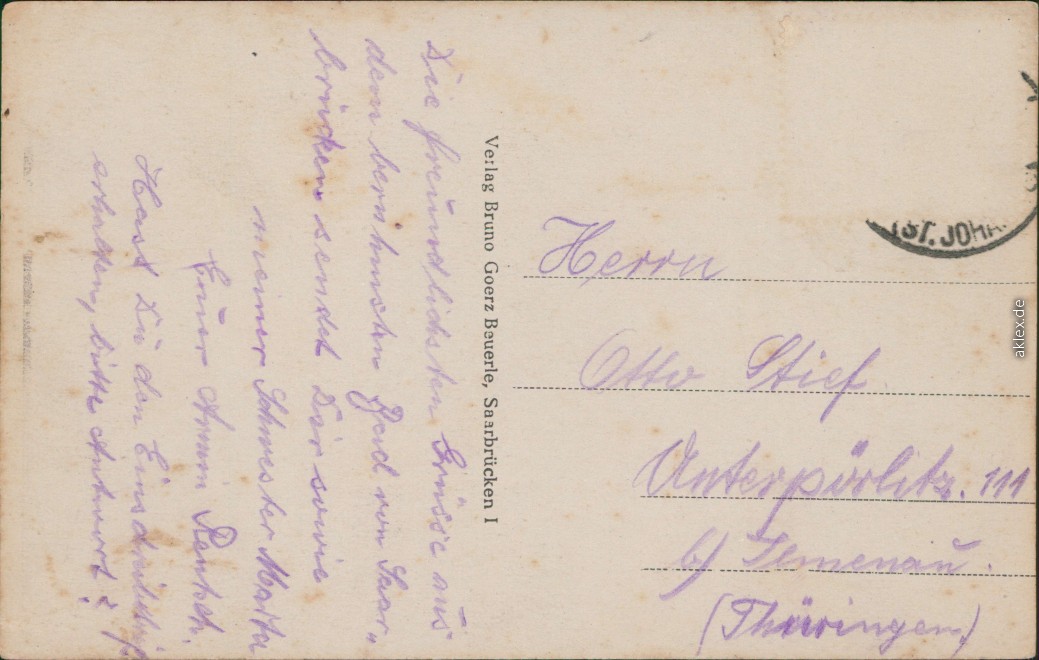 Die freundlichsten Grüsse aus
dem berühmten Bad von Saar-
brücken sendet Dir sowie
meiner Schwester Marta
Euer Armin Rentsch.
Hast Du den Einschreibbrf
erhalten, bitte Antwort!
Verlag Bruno Goerz Beuerle, Saarbrücken I
(ST. JOHA
Herrn
Otto Stief
Unterpörlitz. 111
b/ Ilmenau.
(Thüringen)
aklex.de